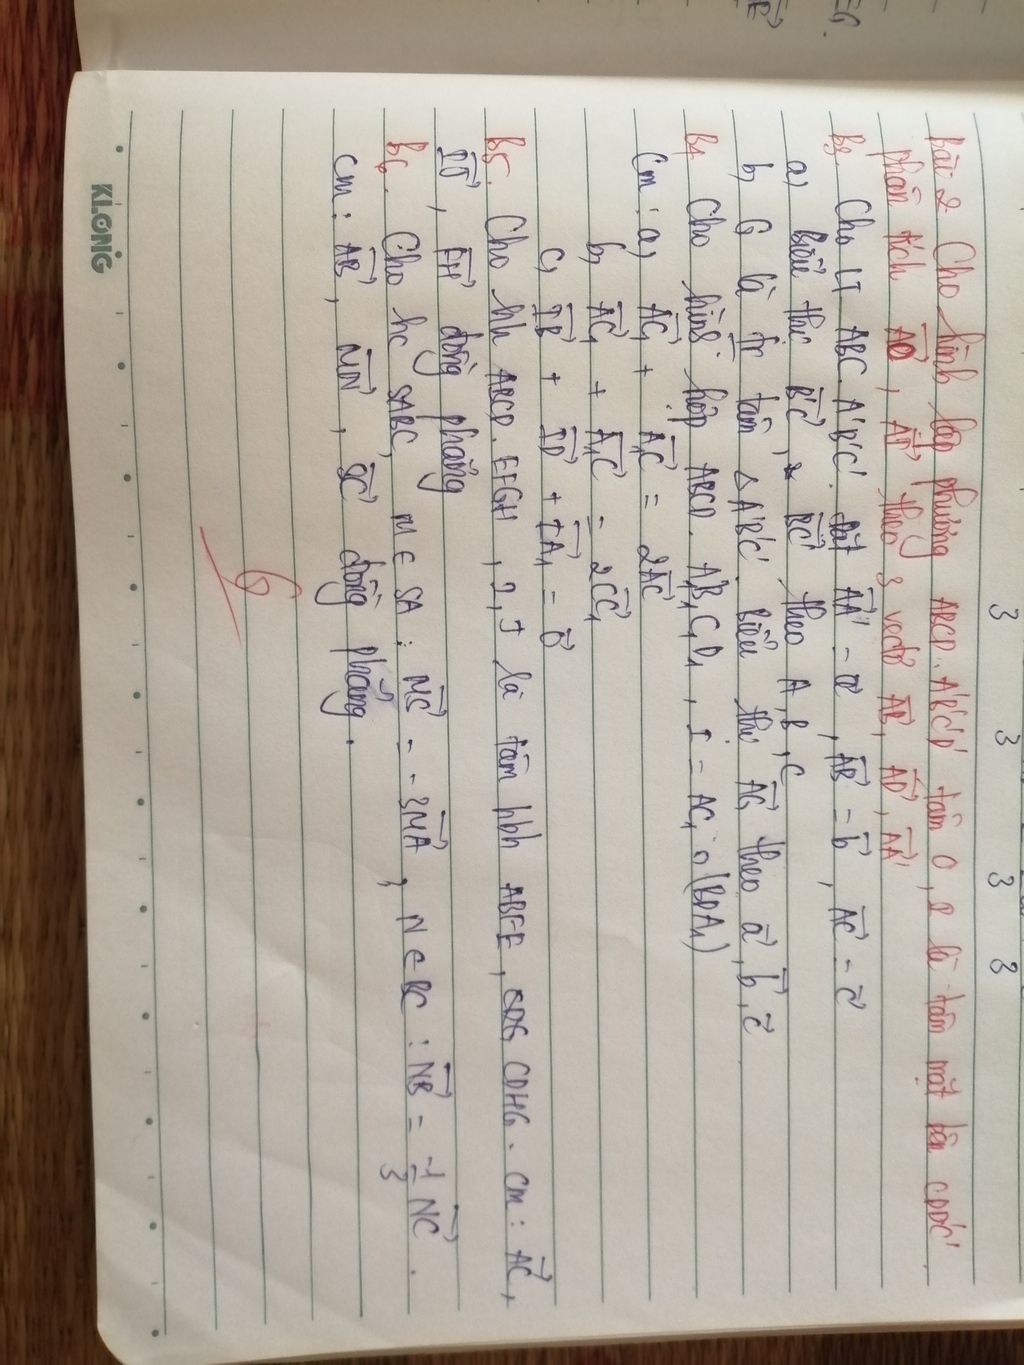 3 3 3 3
Bài 2 Cho hình lập phương ABCD.A'B'C'D' tâm O, I là tâm mặt bên CDD'C'
phân tích AO, AI theo 3 vectơ AB, AD, AA'
B3 Cho LT ABC.A'B'C'. Đặt AA' = a, AB = b, AC = c
a, Biểu thị B'C, BC' theo a, b, c
b, G là tr tâm ΔA'B'C'. Biểu thị AG theo a, b, c
B4 Cho hình hộp ABCD.A₁B₁C₁D₁, I = AC₁ ∩ (BDA₁)
Cm: a, AC₁ + A₁C = 2AC
b, AC₁ + A₁C = 2CC₁
c, IB + ID + IA₁ = 0
B5. Cho hh ABCD.EFGH, I, J là tâm hbh ABFE, CDHG. Cm: AC,
FH đồng phẳng
B6. Cho hc SABC, M ∈ SA: MS = -3MA, N ∈ BC: NB = -1/3 NC.
Cm: AB, MN, SC đồng phẳng.
6
KLONG